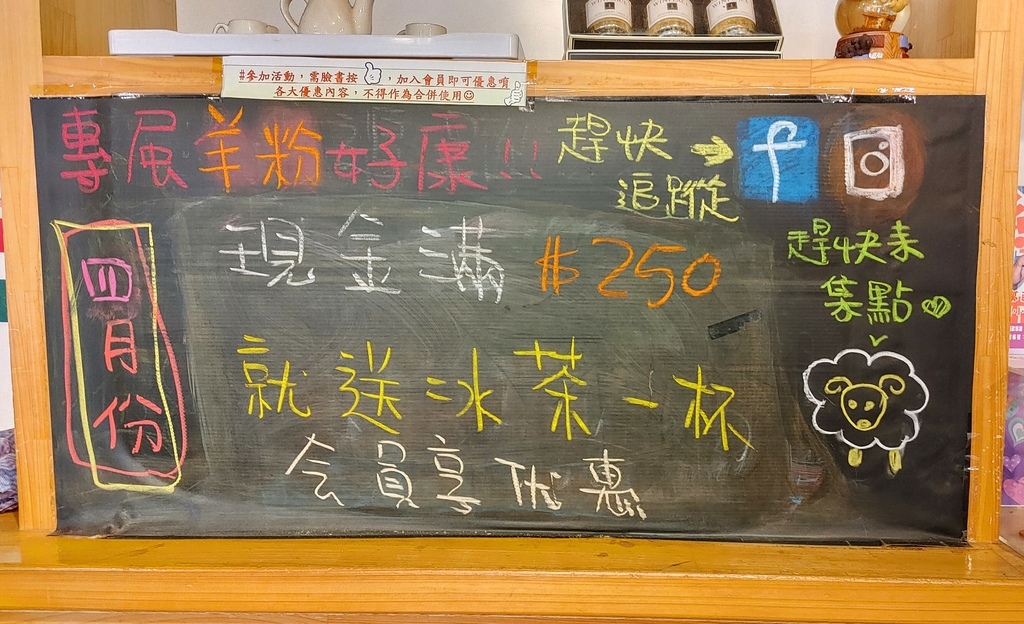 #參加活動，需臉書按，加入會員即可優惠唷
各大優惠內容，不得作為合併使用
專屬羊粉好康!!
趕快
追蹤
f
四月份
現金滿 $250
就送冰茶一杯
会員享优惠
趕快来
集點